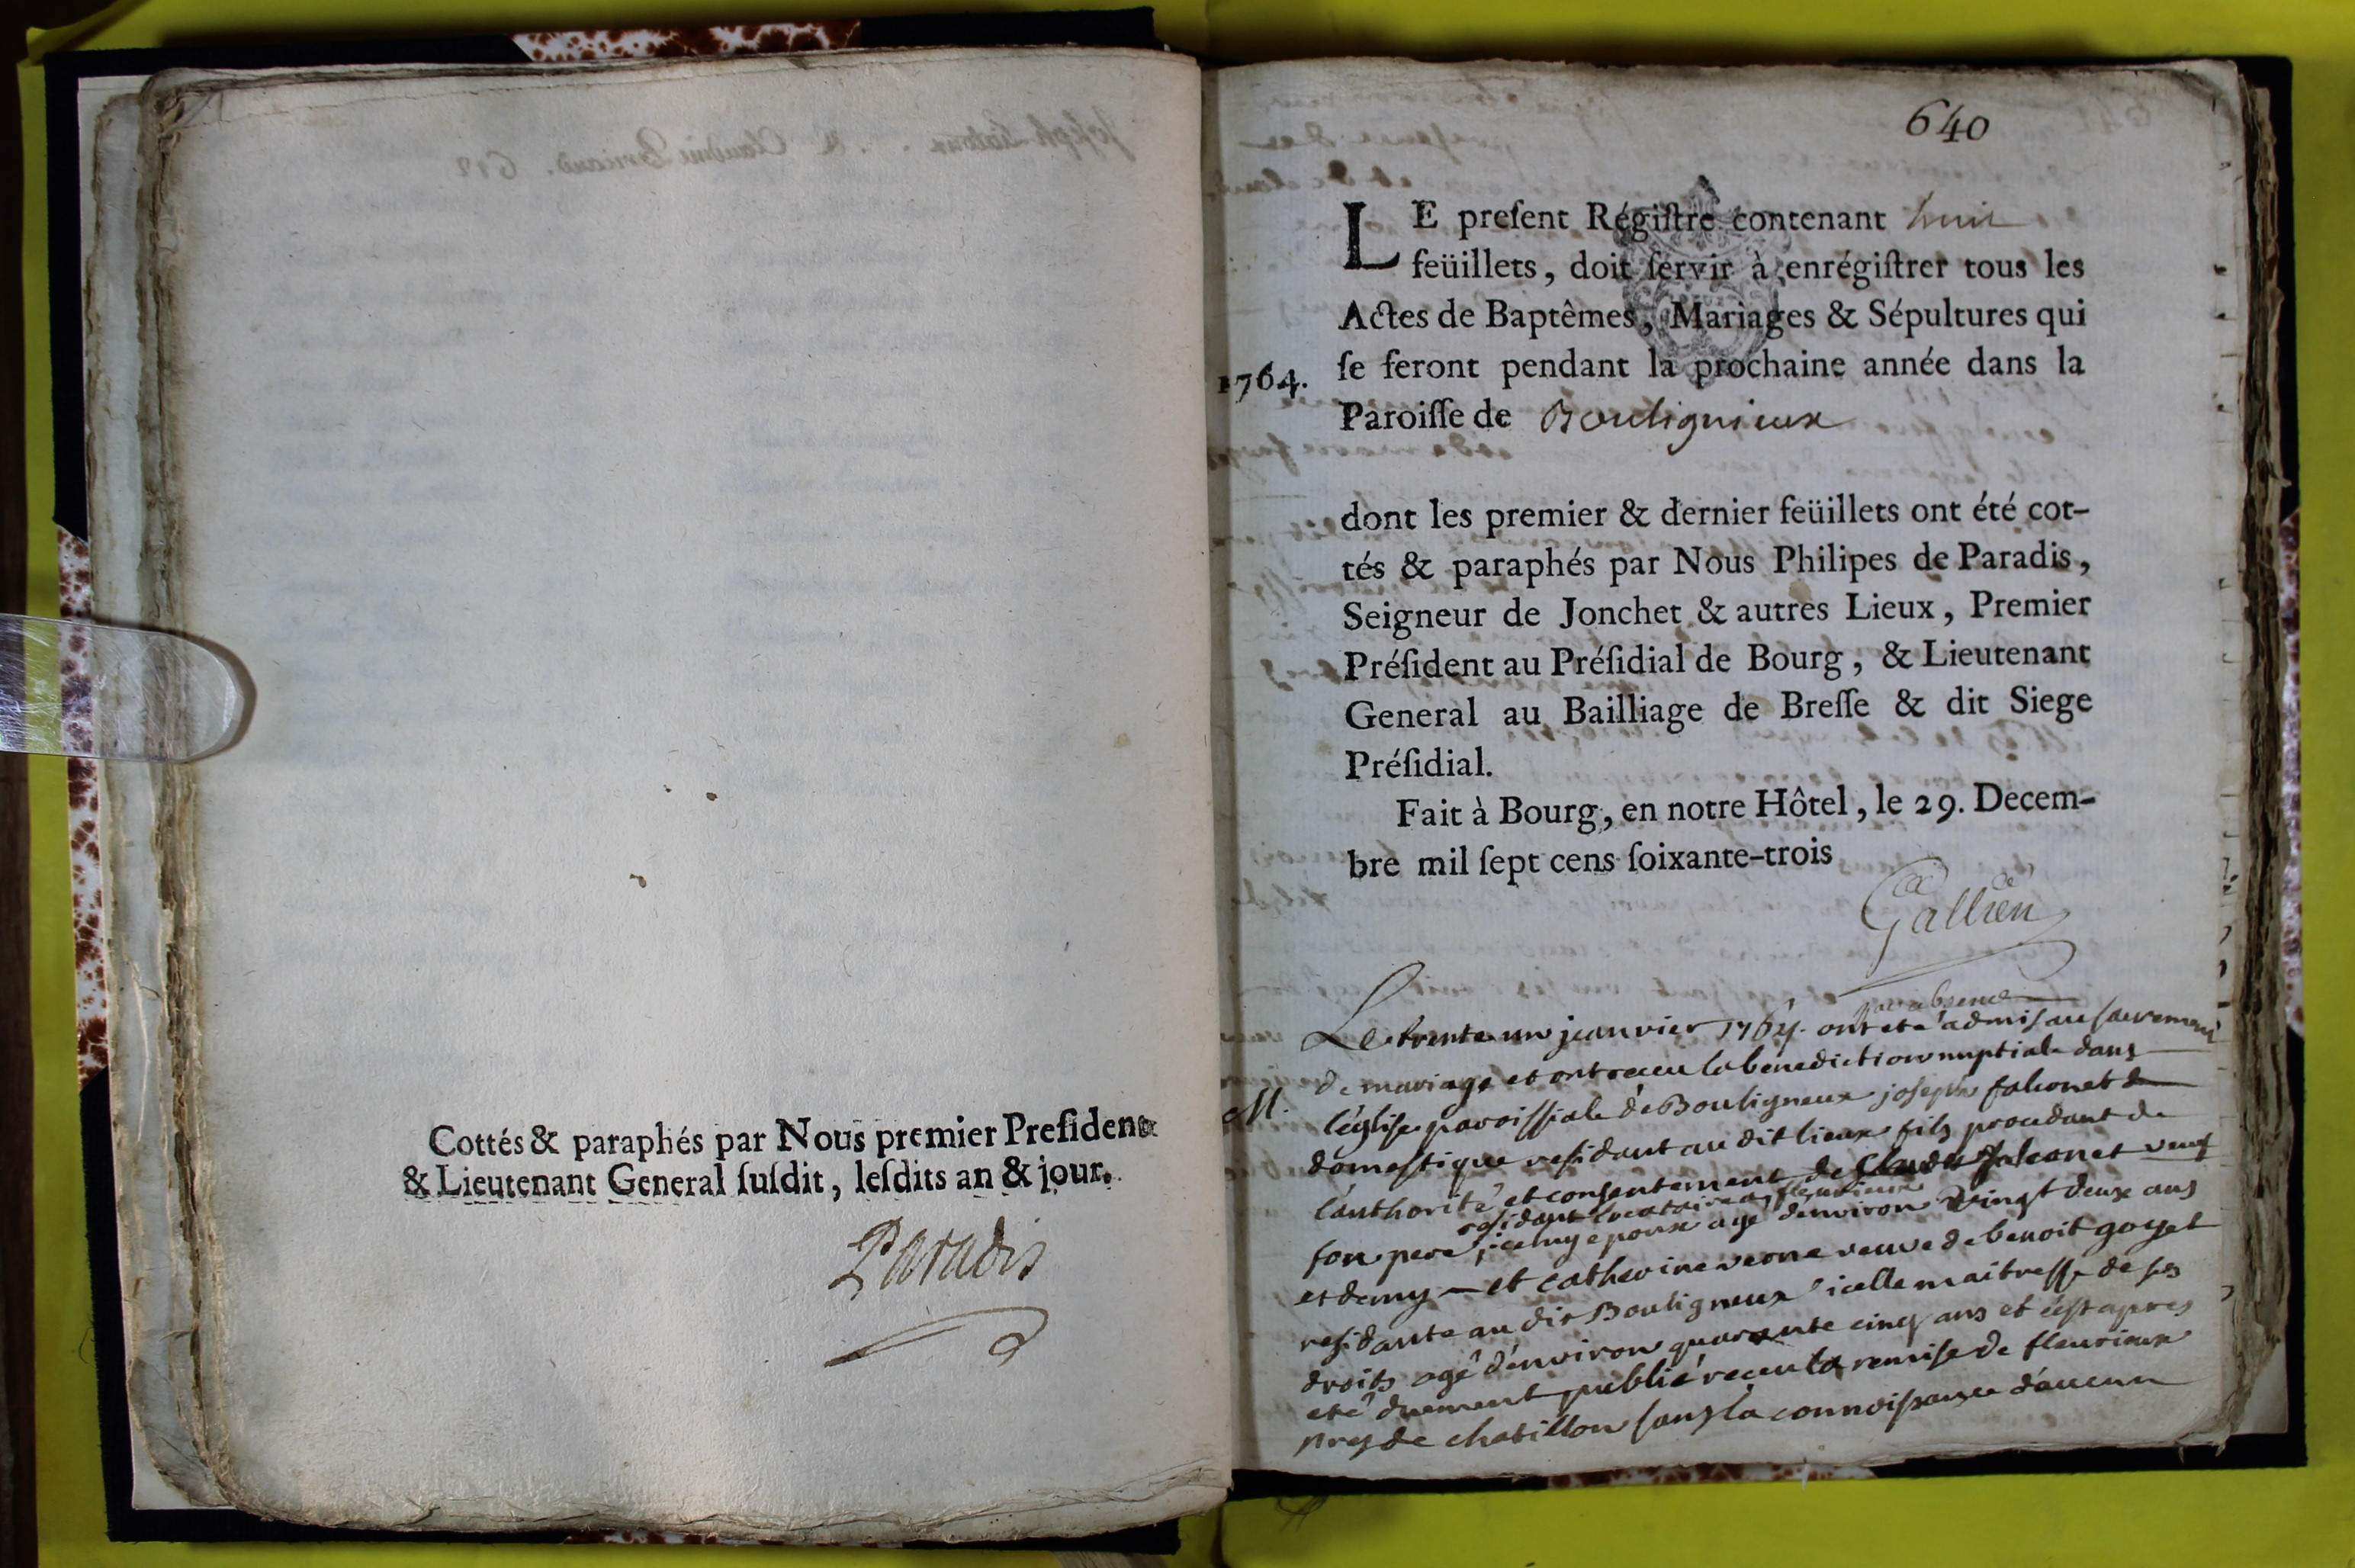 Cottés & paraphés par Nous premier Preſident
& Lieutenant General ſuſdit, leſdits an & jour.
Paradis
640
LE preſent Régiſtre contenant huit
feüillets, doit ſervir à enrégiſtrer tous les
Actes de Baptêmes, Mariages & Sépultures qui
ſe feront pendant la prochaine année dans la
1764.
Paroiſſe de Boulignieux
dont les premier & dernier feüillets ont été cot-
tés & paraphés par Nous Philipes de Paradis,
Seigneur de Jonchet & autres Lieux, Premier
Préſident au Préſidial de Bourg, & Lieutenant
General au Bailliage de Breſſe & dit Siege
Préſidial.
Fait à Bourg, en notre Hôtel, le 29. Decem-
bre mil ſept cens ſoixante-trois
Gallien
par absence
Le trente un janvier 1764. ont eté admis au sacrement
de mariage et ont receu la benediction nuptiale dans
M.
l'église paroissiale de Bouligneux joseph falconet
domestique residant au dit lieux fils procedant de
l'authorité et consentement de Claude falconet veuf
residant locataire a fleurieux
son pere, iceluy epoux agé denviron vingt deux ans
et demy – et catherine verne veuve de benoit goyet
residante au dit Bouligneux icelle maitresse de ses
droits agé d'environ quarante cinq ans et c'est apres
eté duement publié receu la remise de fleurieux
pres de chatillon sans la connoissance d'aucun